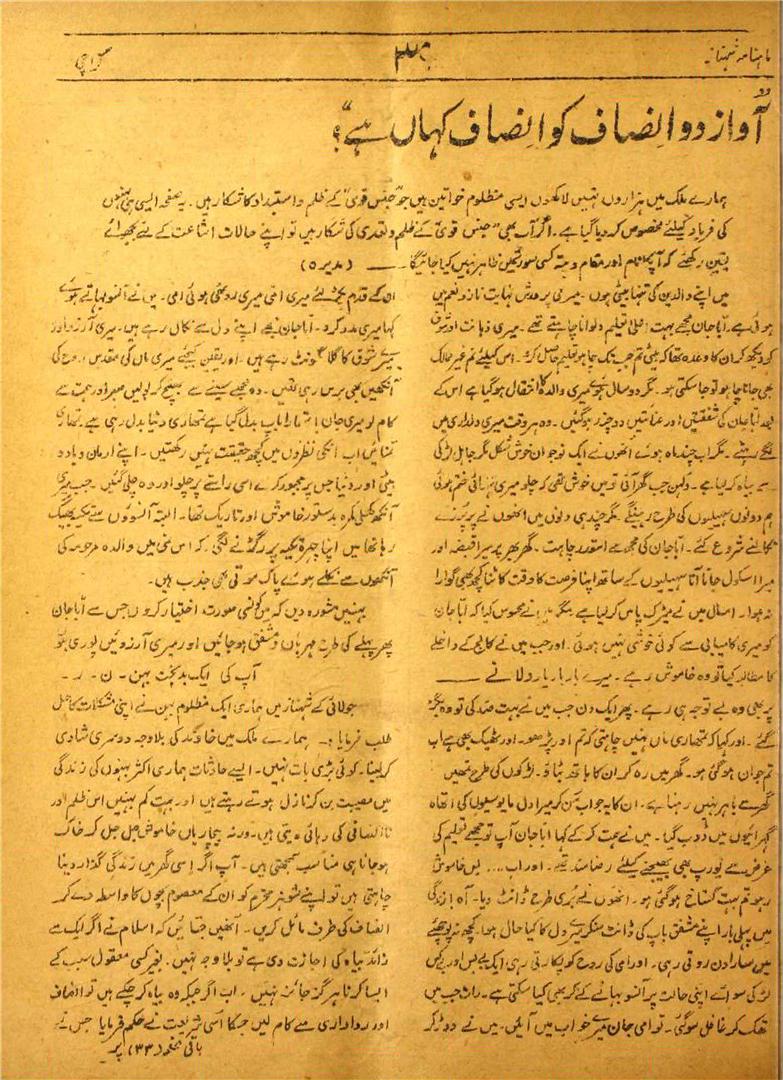 ماہنامہ شہناز
کراچی
”آواز دو انصاف کو انصاف کہاں ہے“؟
ہمارے ملک میں ہزاروں نہیں لاکھوں ایسی مظلوم خواتین ہیں جو ”جنس قوی“ کے ظلم و استبداد کا شکار ہیں۔ یہ صفحہ ایسی ہی بہنوں
کی فریاد کیلئے مخصوص کر دیا گیا ہے۔ اگر آپ بھی ”جنس قوی“ کے ظلم و تعدی کی شکار ہیں تو اپنے حالات اشاعت کے لئے بھجوائے
یقین رکھئے کہ آپ کا نام اور مقام و پتہ کسی صورت میں ظاہر نہیں کیا جائیگا۔ ——— (مدیرہ)
میں اپنے والدین کی تنہا بیٹی ہوں۔ میری پرورش نہایت ناز و نعم میں
ہوئی ہے۔ آبا جان مجھے بہت اعلیٰ تعلیم دلوانا چاہتے تھے۔ میری ذہانت اور شوق
کو دیکھ کر ان کا وعدہ تھا کہ بیٹی تم جب تک چاہو تعلیم حاصل کرو۔ اس کیلئے تم غیر ممالک
بھی جانا چاہو تو جا سکتی ہو۔ مگر دو سال ہوئے میری والدہ کا انتقال ہو گیا ہے اس کے
بعد آبا جان کی شفقتیں اور عنائتیں دو چند ہو گئیں۔ وہ ہر وقت میری دلداری میں
لگے رہتے۔ مگر اب چند ماہ ہوئے انھوں نے ایک نوجوان خوش شکل مگر جاہل لڑکی
سے بیاہ کر لیا ہے۔ دلہن جب گھر آئی تو میں خوش تھی کہ چلو میری تنہائی ختم ہوئی
ہم دونوں سہیلیوں کی طرح رہینگے۔ مگر چند ہی دنوں میں انھوں نے پر پرزے
نکالنے شروع کئے۔ آبا جان کی مجھ سے اسقدر چاہت۔ گھر بھر پر میرا قبضہ اور
میرا سکول جانا آنا سہیلیوں کے ساتھ اپنا فرصت کا وقت کاٹنا کچھ بھی گوارا
نہ ہوا۔ امسال میں نے میٹرک پاس کر لیا ہے مگر میں نے محسوس کیا کہ آبا جان
کو میری کامیابی سے کوئی خوشی نہیں ہوئی۔ اور جب میں نے کالج کے داخلے
کا مطالبہ کیا تو وہ خاموش رہے۔ میرے بار بار یاد دلانے ———
پر بھی وہ بے توجہی رہے۔ پھر ایک دن جب میں نے بہت ضد کی تو وہ بگڑ
گئے۔ اور کہا کہ تمہاری ماں نہیں چاہتی کہ تم اور پڑھو۔ اور ٹھیک بھی ہے اب
تم جوان ہو گئی ہو۔ گھر میں رہ کر ان کا ہاتھ بٹاؤ۔ لڑکوں کی طرح تمہیں
گھر سے باہر نہیں رہنا ہے۔ ان کا یہ جواب سن کر میرا دل مایوسیوں کی اتھاہ
گہرائیوں میں ڈوب گیا۔ میں نے ہمت کر کے کہا ابا جان آپ تو مجھے تعلیم کی
غرض سے یورپ بھی بھیجنے کیلئے رضامند تھے۔ اور اب.... بس خاموش
رہو تم بہت گستاخ ہو گئی ہو۔ انھوں نے بُری طرح ڈانٹ دیا۔ آہ! زندگی
میں پہلی بار اپنے مشفق باپ کی ڈانٹ سنکر میرے دل کا کیا حال ہوا۔ کچھ نہ پوچھئے
میں سارا دن روتی رہی۔ اور امی کی روح کو پکارتی رہی ایک بے بس اور بے کس
لڑکی سوائے اپنی حالت پر آنسو بہانے کے کر بھی کیا سکتی ہے۔ رات جب میں
تھک کر غافل سو گئی۔ تو امی جان میرے خواب میں آئیں۔ میں نے دوڑ کر
ان کے قدم پکڑ لئے میری امی میری روٹھی ہوئی امی۔ میں نے آنسو بہاتے ہوئے
کہا میری مدد کرو۔ آبا جان مجھے اپنے دل سے نکال رہے ہیں۔ میری آرزو اور
میرے شوق کا گلا گھونٹ رہے ہیں۔ اور یقین کیجئے میری ماں کی مقدس روح کی
آنکھیں بھی برس رہی تھیں۔ وہ مجھے سینے سے بھینچ کر بولیں صبر اور ہمت سے
کام لو میری جان! تمہارا باپ بدل گیا ہے تمہاری دنیا بدل رہی ہے۔ تمہاری
تمنائیں اب انکی نظروں میں کچھ حقیقت نہیں رکھتیں۔ اپنے ارمان دبا دو
بیٹی اور دنیا جس پر مجبور کرے اسی راستے پر چلو اور وہ چلی گئیں۔ جب میری
آنکھ کھلی کمرہ بدستور خاموش اور تاریک تھا۔ البتہ آنسوؤں سے تکیہ بھیگ
رہا تھا میں اپنا چہرہ تکیہ پر رگڑنے لگی۔ کہ اس نمی میں والدہ مرحومہ کی
آنکھوں سے نکلے ہوئے پاک موتی بھی جذب ہیں۔
بہنیں مشورہ دیں کہ میں کونسی صورت اختیار کروں جس سے آبا جان
پھر پہلے کی طرح مہربان و مشفق ہو جائیں اور میری آرزوئیں پوری ہوں
آپ کی ایک بدبخت بہن۔ ن۔ ر۔
جولائی کے شہناز میں ہماری ایک مظلوم بہن نے اپنی مشکلات کا حل
طلب فرمایا ہے۔ ہمارے ملک میں خاوند کی بلا وجہ دوسری شادی
کر لینا۔ کوئی بڑی بات نہیں۔ ایسے حادثات ہماری اکثر بہنوں کی زندگی
میں مصیبت بن کر نازل ہوتے رہتے ہیں اور بہت کم بہنیں اس ظلم اور
ناانصافی کی دہائی دیتی ہیں۔ ورنہ بیچاریاں خاموش جل جل کر خاک
ہو جانا ہی مناسب سمجھتی ہیں۔ آپ اگر اسی گھر میں زندگی گذار دینا
چاہتی ہیں تو اپنے شوہر محترم کو ان کے معصوم بچوں کا واسطہ دے کر
انصاف کی طرف مائل کریں۔ انھیں جتائیں کہ اسلام نے اگر ایک سے
زائد بیاہ کی اجازت دی ہے تو بلا وجہ نہیں۔ بغیر کسی معقول سبب کے
ایسا کرنا ہرگز جائز نہیں۔ اب اگر جبکہ وہ بیاہ کر چکے ہیں تو انصاف
اور رواداری سے کام لیں جسکا اسی شریعت نے حکم فرمایا جس نے
باقی صفحہ (۳۳) پر